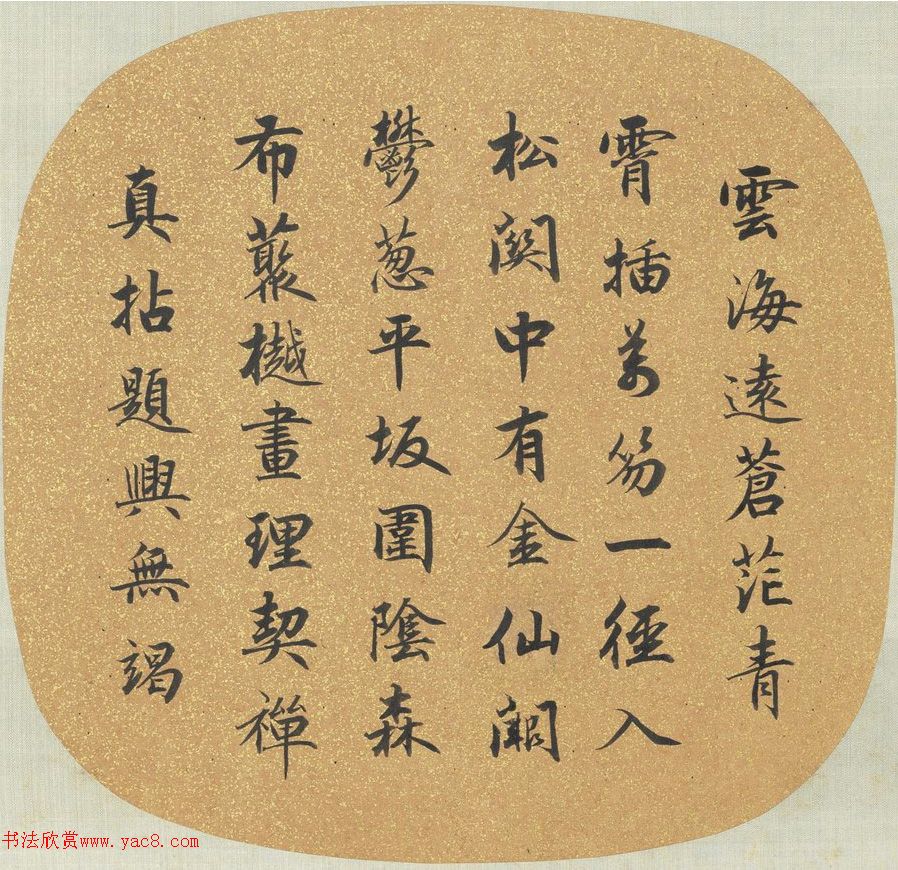 雲海遠蒼茫青
霄插萬笏一徑入
松関中有金仙闕
鬱葱平坂圍陰森
布藂樾畫理契禪
真拈題興無竭
书法欣赏www.yac8.com